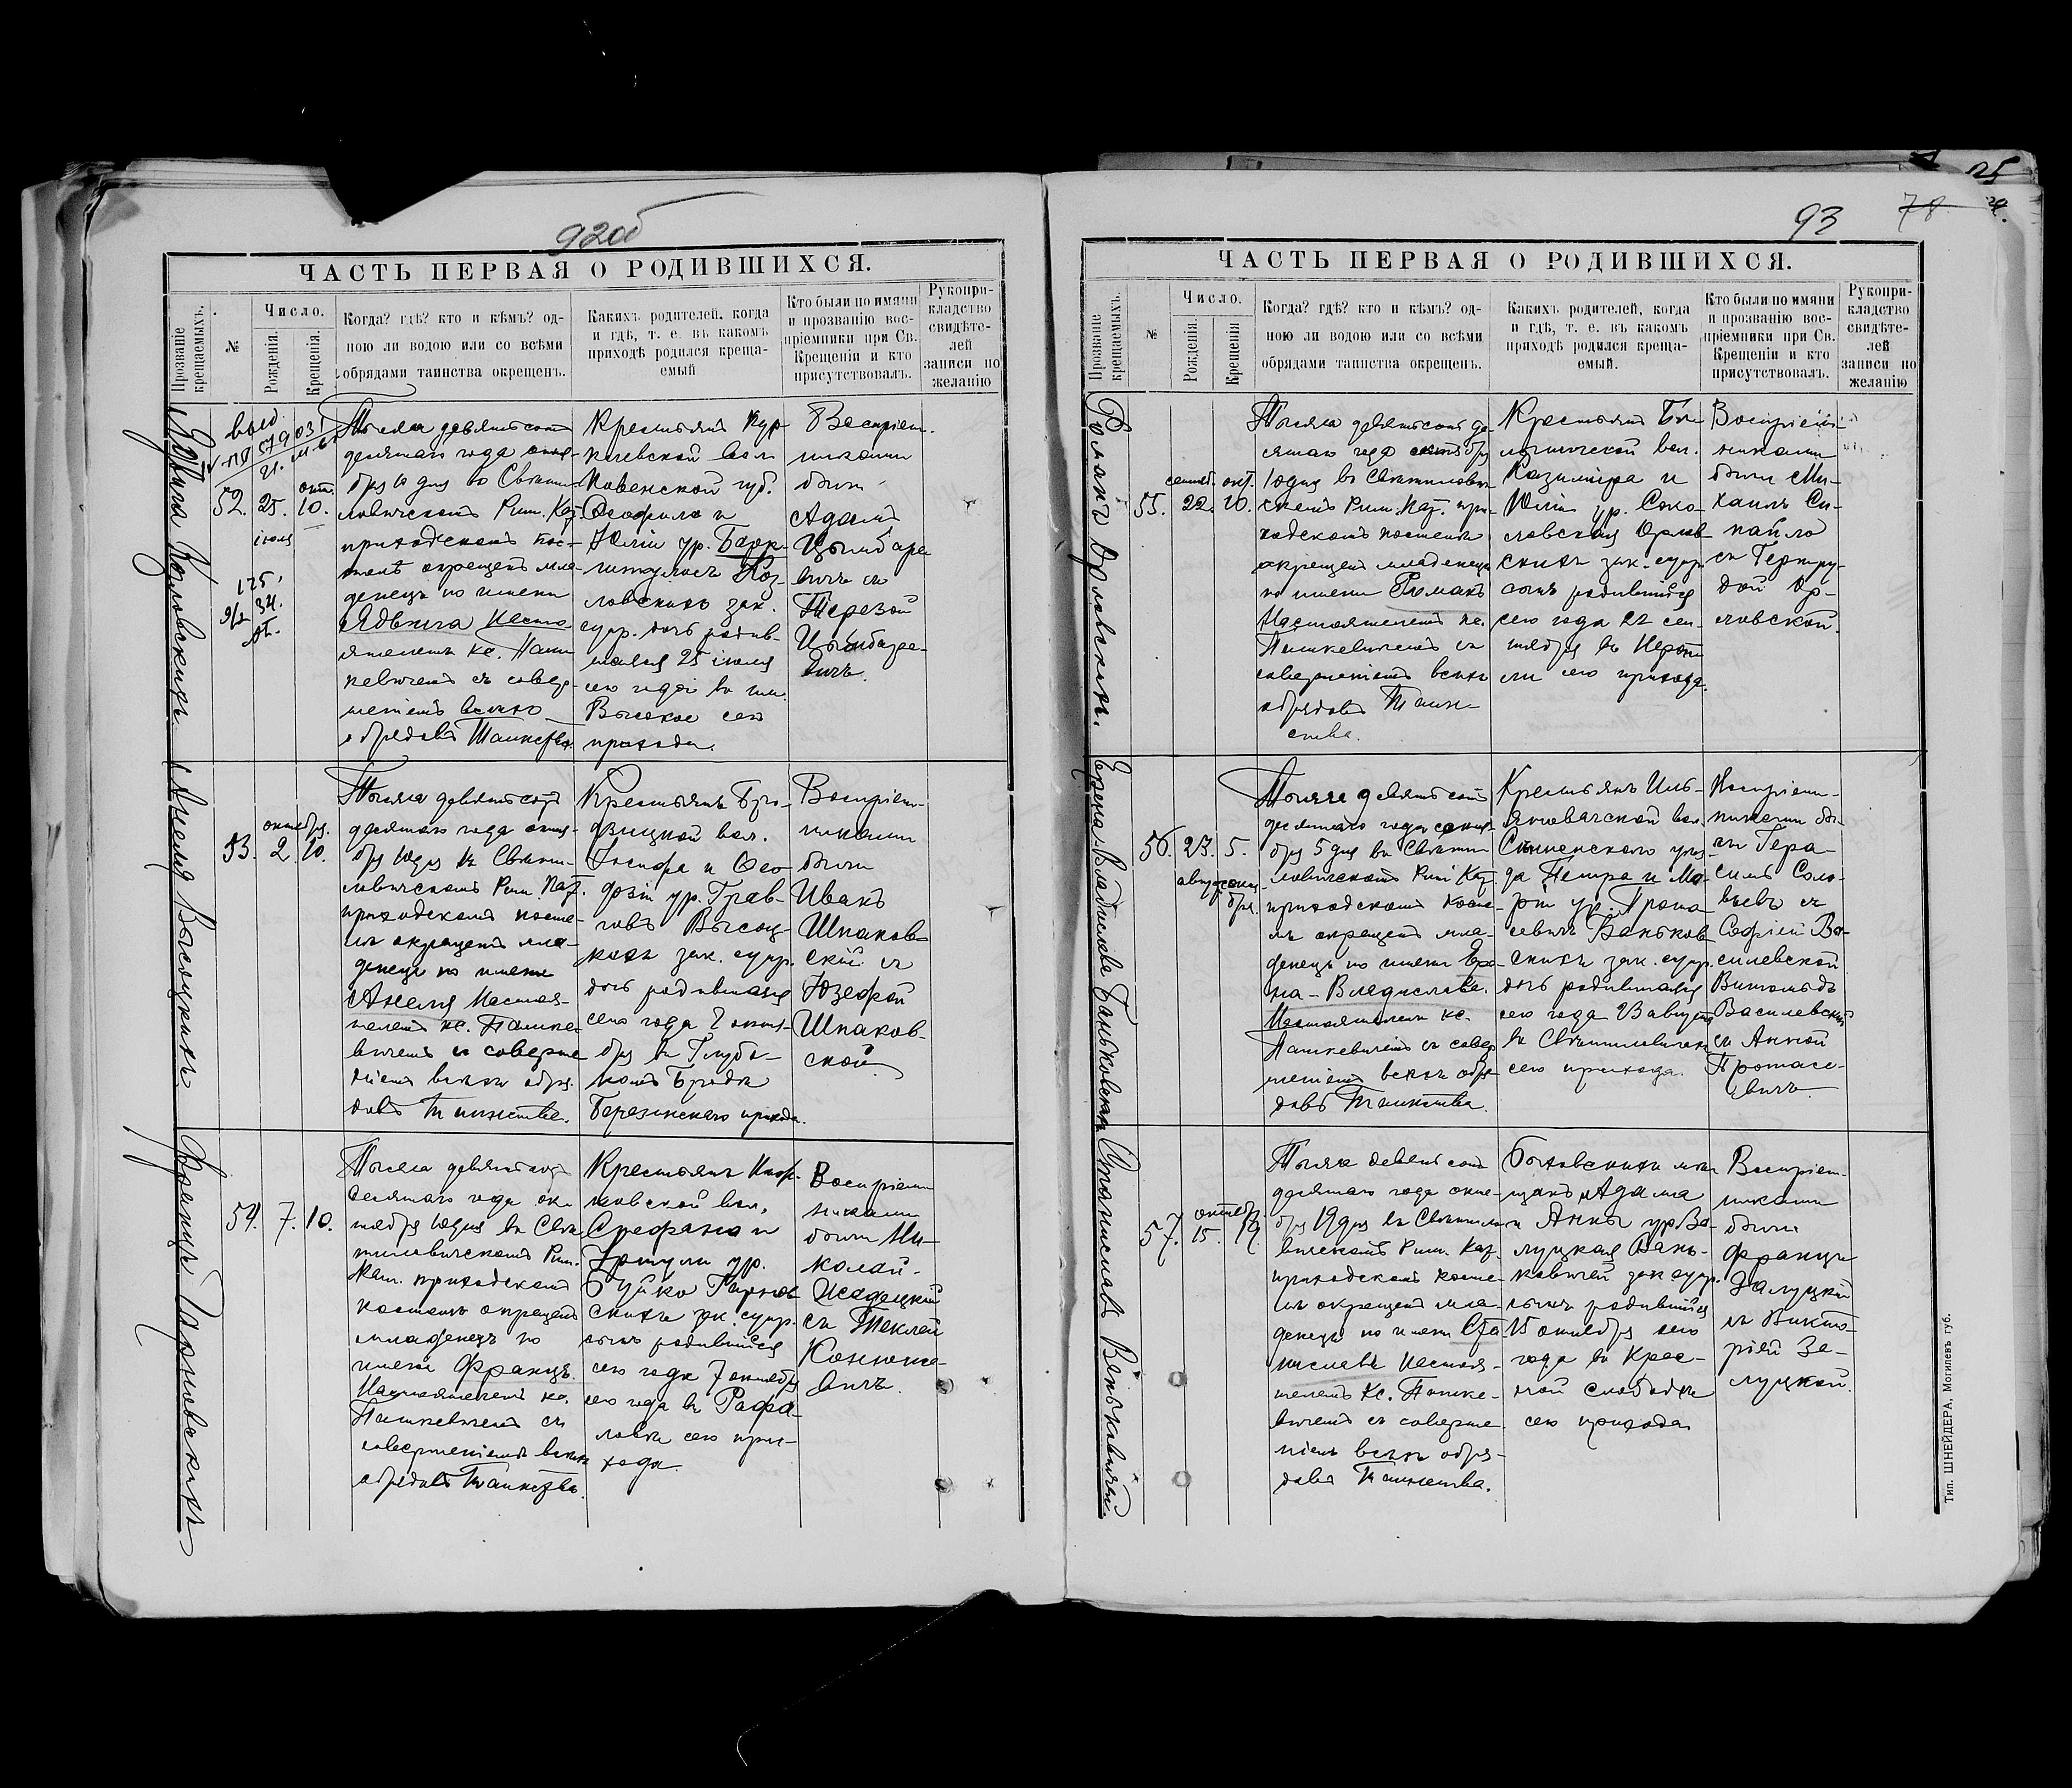 92об
ЧАСТЬ ПЕРВАЯ О РОДИВШИХСЯ.
Прозваніе крещаемыхъ.
№
Число.
Рожденія.
Крещенія.
Когда? гдѣ? кто и кѣмъ? од-
ною ли водою или со всѣми
обрядами таинства окрещенъ.
Какихъ родителей, когда
и гдѣ, т. е. въ какомъ
приходѣ родился креща-
емый
Кто были по имяни
и прозванію вос-
пріемники при Св.
Крещеніи и кто
присутствовалъ.
Рукопри-
кладство
свидѣте-
лей
записи по
желанію
Ядвига Козловскихъ.
52.
25.
іюля
окт.
10.
Тысяча девятьсотъ
десятаго года октя-
бря 10 дня въ Святи-
ловичскомъ Рим. Кат.
приходскомъ кос-
телѣ окрещенъ мла-
денецъ по имени
Ядвига Насто-
ятелемъ кс. Паш-
кевичемъ съ совер-
шеніемъ всѣхъ
обрядовъ Таинства.
Крестьянъ Кур-
клевской вол.
Ковенской губ.
Ѳеофила и
Юліи ур.
Коз-
ловскихъ зак.
супр. дочь родив-
шаяся 25 іюля
сего года въ им.
Высокое сего
прихода.
Воспріем-
никами
были
Адамъ
Цымбаре-
вичъ съ
Терезой
Цымбаре-
вичъ.
Анеля Высоцкихъ.
53.
октября.
2.
10.
Тысяча девятьсотъ
десятаго года октя-
бря 10 дня въ Святи-
ловичскомъ Рим. Кат.
приходскомъ косте-
лѣ окрещенъ мла-
денецъ по имени
Анеля Настоя-
телемъ кс. Пашке-
вичемъ съ соверше-
ніемъ всѣхъ обря-
довъ Таинства.
Крестьянъ Бро-
дзицкой вол.
Іосифа и Ѳео-
дозіи ур.
Высоц-
кихъ зак. супр.
дочь родившаяся
сего года 2 октя-
бря въ Глубо-
комъ Бродѣ
Березинскаго прихода.
Воспріем-
никами
были
Иванъ
Шпаков-
скій съ
Юзефой
Шпаков-
ской
Францъ Тарновскихъ
54.
7.
10.
Тысяча девятьсотъ
десятаго года ок-
тября 10 дня въ Свя-
тиловичскомъ Рим.
Кат. приходскомъ
костелѣ окрещенъ
младенецъ по
имени Францъ.
Настоятелемъ кс.
Пашкевичемъ съ
совершеніемъ всѣхъ
обрядовъ Таинства.
Крестьянъ
вол.
Стефана и
Уршули ур.
Буйко Тарнов-
скихъ зак. супр.
сынъ родившійся
сего года 7 октября
сего года въ Рафа-
ловкѣ сего при-
хода.
Воспріем-
никами
были Ни-
колай
Исадецкій
съ Теклей
Конюше-
вичъ.
93
78
ЧАСТЬ ПЕРВАЯ О РОДИВШИХСЯ.
Прозваніе крещаемыхъ.
№
Число.
Рожденія.
Крещенія
Когда? гдѣ? кто и кѣмъ? од-
ною ли водою или со всѣми
обрядами таинства окрещенъ.
Какихъ родителей, когда
и гдѣ, т. е. въ какомъ
приходѣ родился креща-
емый.
Кто были по имяни
и прозванію вос-
пріемники при Св.
Крещеніи и кто
присутствовалъ.
Рукопри-
кладство
свидѣте-
лей
записи по
желанію
Романъ Орловскихъ.
55.
сентяб.
22.
окт.
10.
Тысяча девятьсотъ де-
сятаго года октября
10 дня въ Святилович-
скомъ Рим. Кат. при-
ходскомъ костелѣ
окрещенъ младенецъ
по имени Романъ
Настоятелемъ кс.
Пашкевичемъ съ
совершеніемъ всѣхъ
обрядовъ Таин-
ства.
Крестьянъ
вол.
Казиміра и
Юліи ур. Соко-
ловская Орлов-
скихъ зак. супр.
сынъ родившійся
сего года 22 сен-
тября въ
сего прихода.
Воспріем-
никами
были Ми-
хаилъ Си-
пайло
съ Гертру-
дой Ор-
ловской.
Ирена-Владислава Баньковскихъ
56.
23.
августа
5.
октя-
бря.
Тысяча девятьсотъ
десятаго года октя-
бря 5 дня въ Святи-
ловичскомъ Рим. Кат.
приходскомъ косте-
лѣ окрещенъ мла-
денецъ по имени Ире-
на-Владислава.
Настоятелемъ кс.
Пашкевичемъ съ совер-
шеніемъ всѣхъ обря-
довъ Таинства.
Крестьянъ Иль-
яновичской вол.
Сѣнненскаго уѣз-
да Петра и Ма-
ріи ур. Прота-
севичъ Баньков-
скихъ зак. супр.
дочь родившаяся
сего года 23 августа
въ Святиловичахъ
сего прихода.
Воспріем-
никами бы-
ли Гера-
симъ Соло-
вьевъ съ
Софіей Ва-
силевской
Витольдъ
Василевскій
съ Анной
Протасе-
вичъ
Станиславъ Веньковичей.
57.
октябр.
15.
19.
Тысяча девятьсотъ
десятаго года октя-
бря 19 дня въ Святило-
вичскомъ Рим. Кат.
приходскомъ косте-
лѣ окрещенъ мла-
денецъ по имени Ста-
ниславъ Настоя-
телемъ кс. Пашке-
вичемъ съ соверше-
ніемъ всѣхъ обря-
довъ Таинства.
Быховскихъ мѣ-
щанъ Адама
и Анны ур. За-
луцкая Вень-
ковичей зак. супр.
сынъ родившійся
15 октября сего
года въ Крас-
ной слободкѣ
сего прихода
Воспріем-
никами
были
Францъ
Залуцкій
съ Викто-
ріей За-
луцкой.
Тип. ШНЕЙДЕРА, Могилевъ губ.